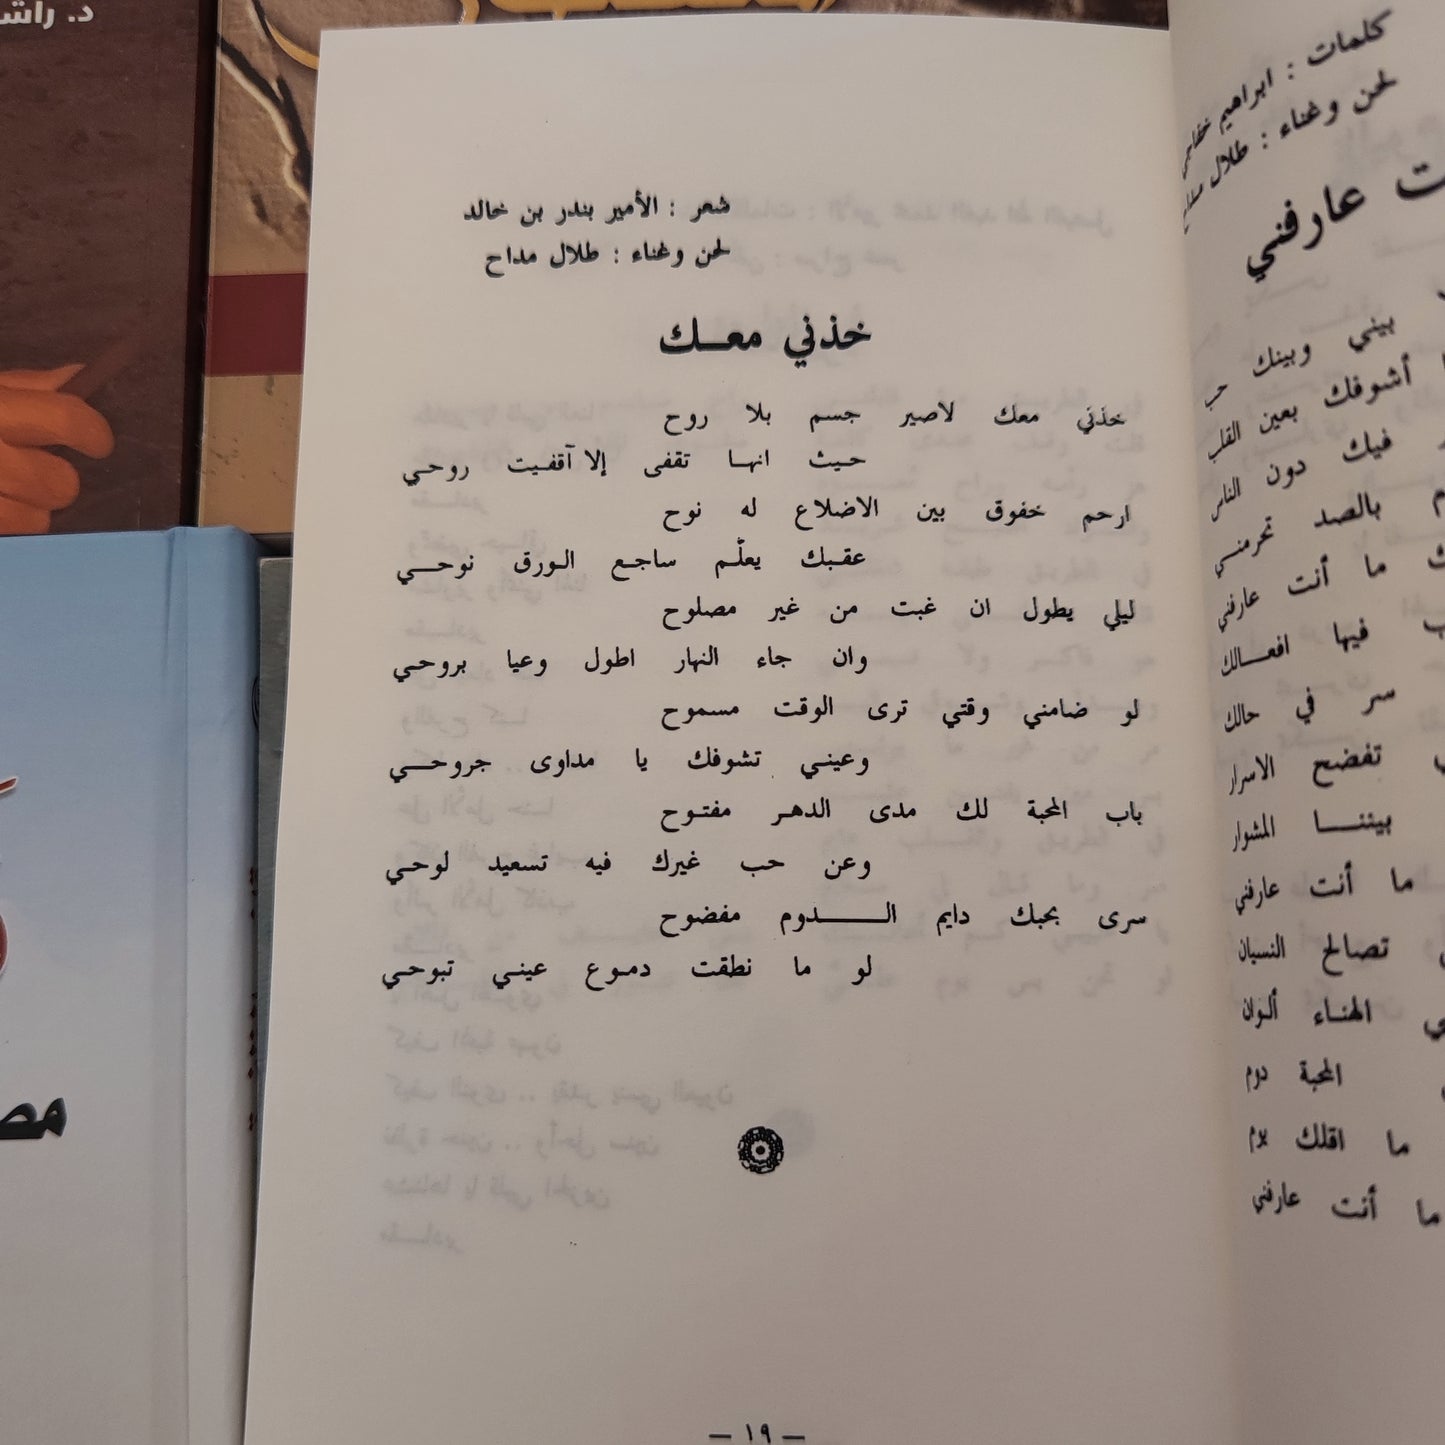 شعر : الأمير بندر بن خالد
لحن وغناء : طلال مداح
خذني معـــك
خذني معك لاصير جسم بلا روح
حيث انها تقفى إلا آقفيت روحي
ارحم خفوق بين الاضلاع له نوح
عقبك يعلّم ساجع الورق نوحي
ليلي يطول ان غبت من غير مصلوح
وان جاء النهار اطول وعيا بروحي
لو ضامني وقتي ترى الوقت مسموح
وعيني تشوفك يا مداوى جروحي
باب المحبة لك مدى الدهر مفتوح
وعن حب غيرك فيه تسعيد لوحي
سرى بحبك دايم الــــدوم مفضوح
لو ما نطقت دموع عيني تبوحي
— ١٩ —
كلمات : ابراهيم خفاجي
لحن وغناء : طلال
عارفني
بيني وبينك حب
أشوفك بعين القلب
فيك دون الناس
بالصد تحرمني
ما أنت عارفني
فيها افعـــالك
سر في حالك
تفضح الاسرار
بيننـــا المشوار
ما أنت عارفني
تصالح النسيان
الهناء ألوان
المحبة دوم
ما اقلك يوم
ما أنت عارفني
د.